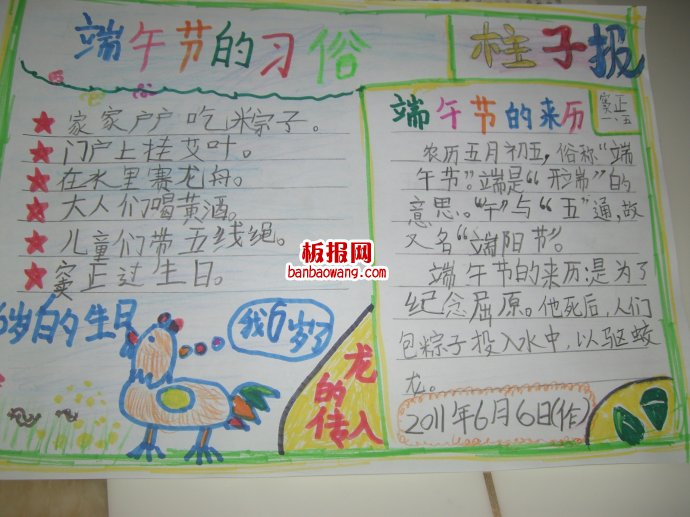 端午节的习俗
柱子报
★家家户户吃粽子。
★门户上挂艾叶。
★在水里赛龙舟。
★大人们喝黄酒。
★儿童们带五线绳。
★窦正过生日。
6岁的生日
我6岁了
龙的传人
端午节的来历
窦正
一.五
农历五月初五，俗称“端
午节”。端是“开端”的
意思。“午”与“五”通，故
又名“端阳节”。
端午节的来历：是为了
纪念屈原。他死后，人们
包粽子投入水中，以驱蛟
龙。
2011年6月6日(作)
板报网
banbaowang.com